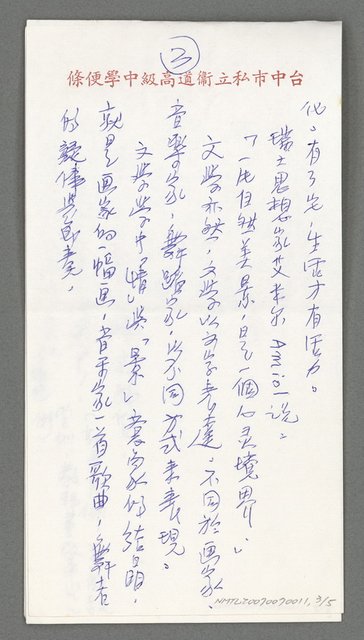 ③
台中市私立衛道高級中學便條
化。有了它，生活才有活力。
瑞士思想家艾米尔 Amiel 说。
「一片自然美景，是一個心灵境界」
文学亦然，文学以文字表達。不同於画家、
音樂家，舞蹈家，以不同方式来表現。
文学中「情」與「景」交融的結晶，
就是画家的一幅画，音乐家一首歌曲，舞者
的
NMTL20070090011, 3/5